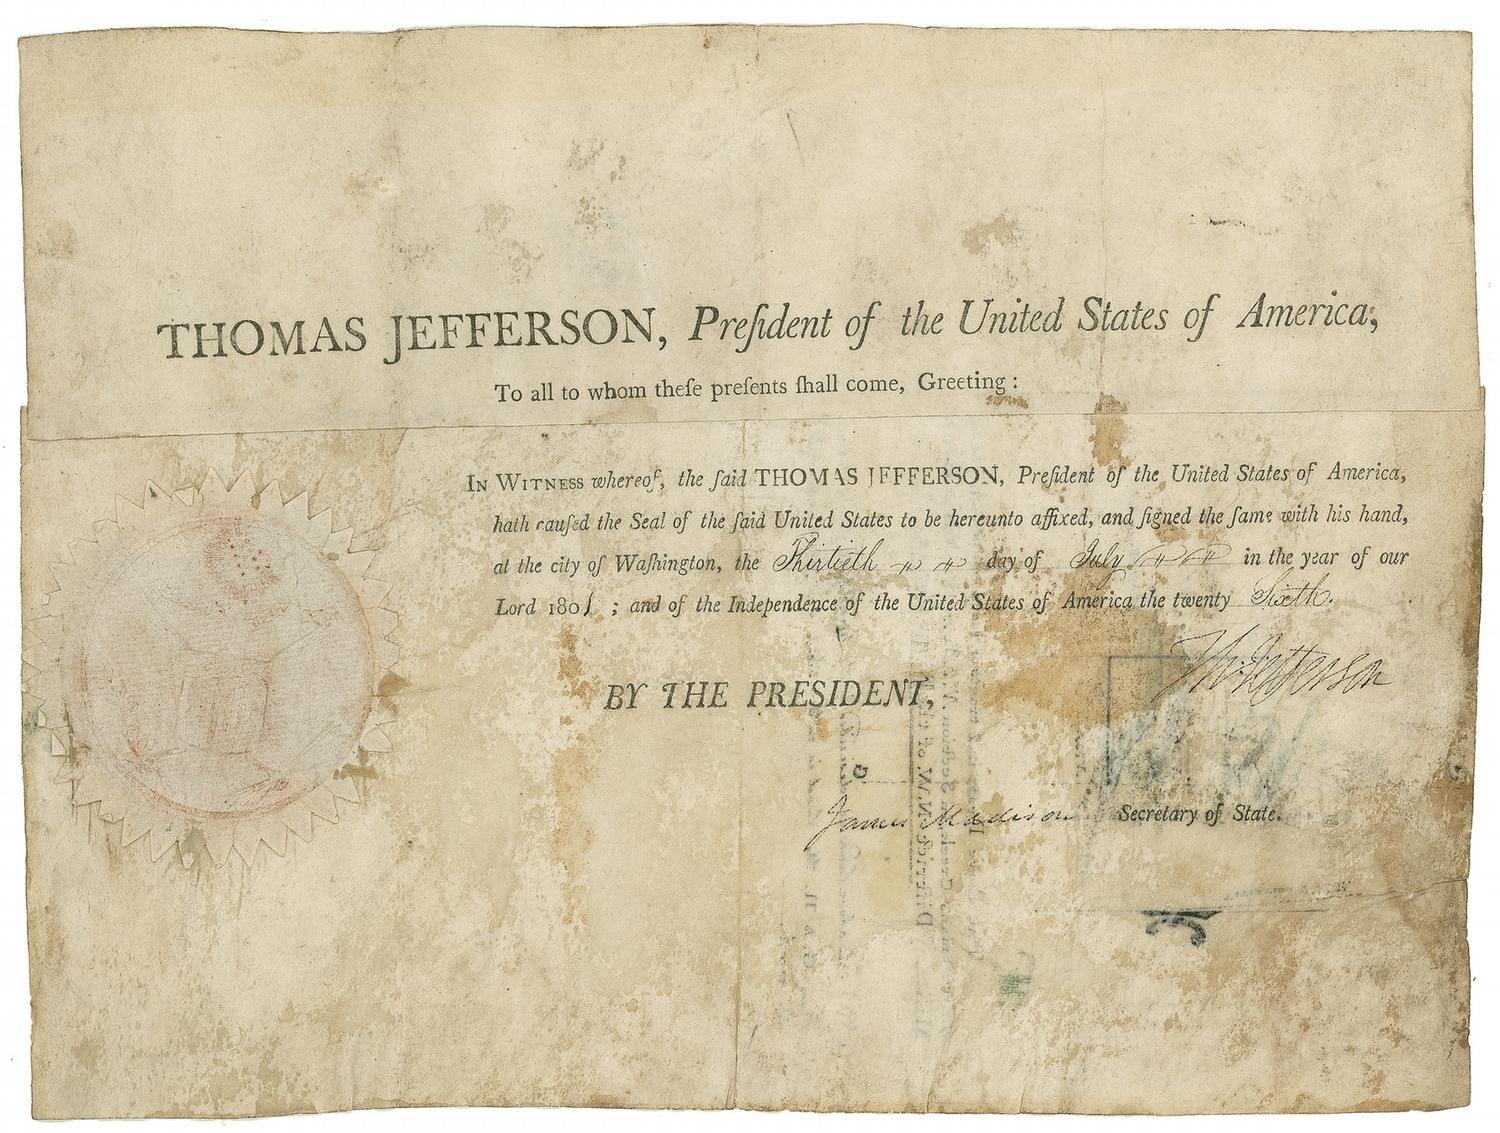 THOMAS JEFFERSON, Preſident of the United States of America,
To all to whom theſe preſents ſhall come, Greeting:
IN WITNESS whereof, the ſaid THOMAS JEFFERSON, Preſident of the United States of America,
hath cauſed the Seal of the ſaid United States to be hereunto affixed, and ſigned the ſame with his hand,
at the city of Waſhington, the Thirtieth day of July in the year of our
Lord 1801 ; and of the Independence of the United States of America the twenty Sixth.
Th: Jefferson
BY THE PRESIDENT,
James Madison Secretary of State.